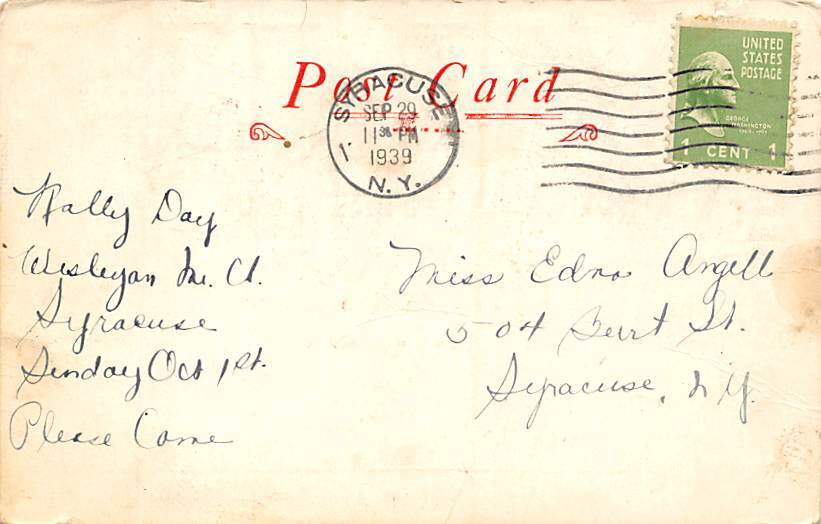 Post Card
SYRACUSE
SEP 29
11 30 PM
1939
N.Y.
UNITED
STATES
POSTAGE
GEORGE
WASHINGTON
1 CENT 1
Rally Day
Wesleyan M. Ch.
Syracuse
Sunday Oct 1st.
Please Come
Miss Edna Angell
504 Burt St.
Syracuse, N.Y.